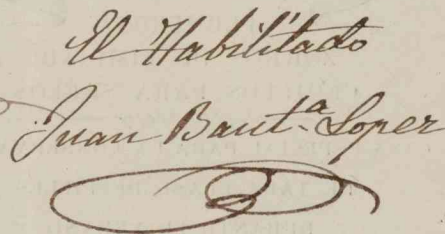 El Habilitado
Juan Baut.ª Loper